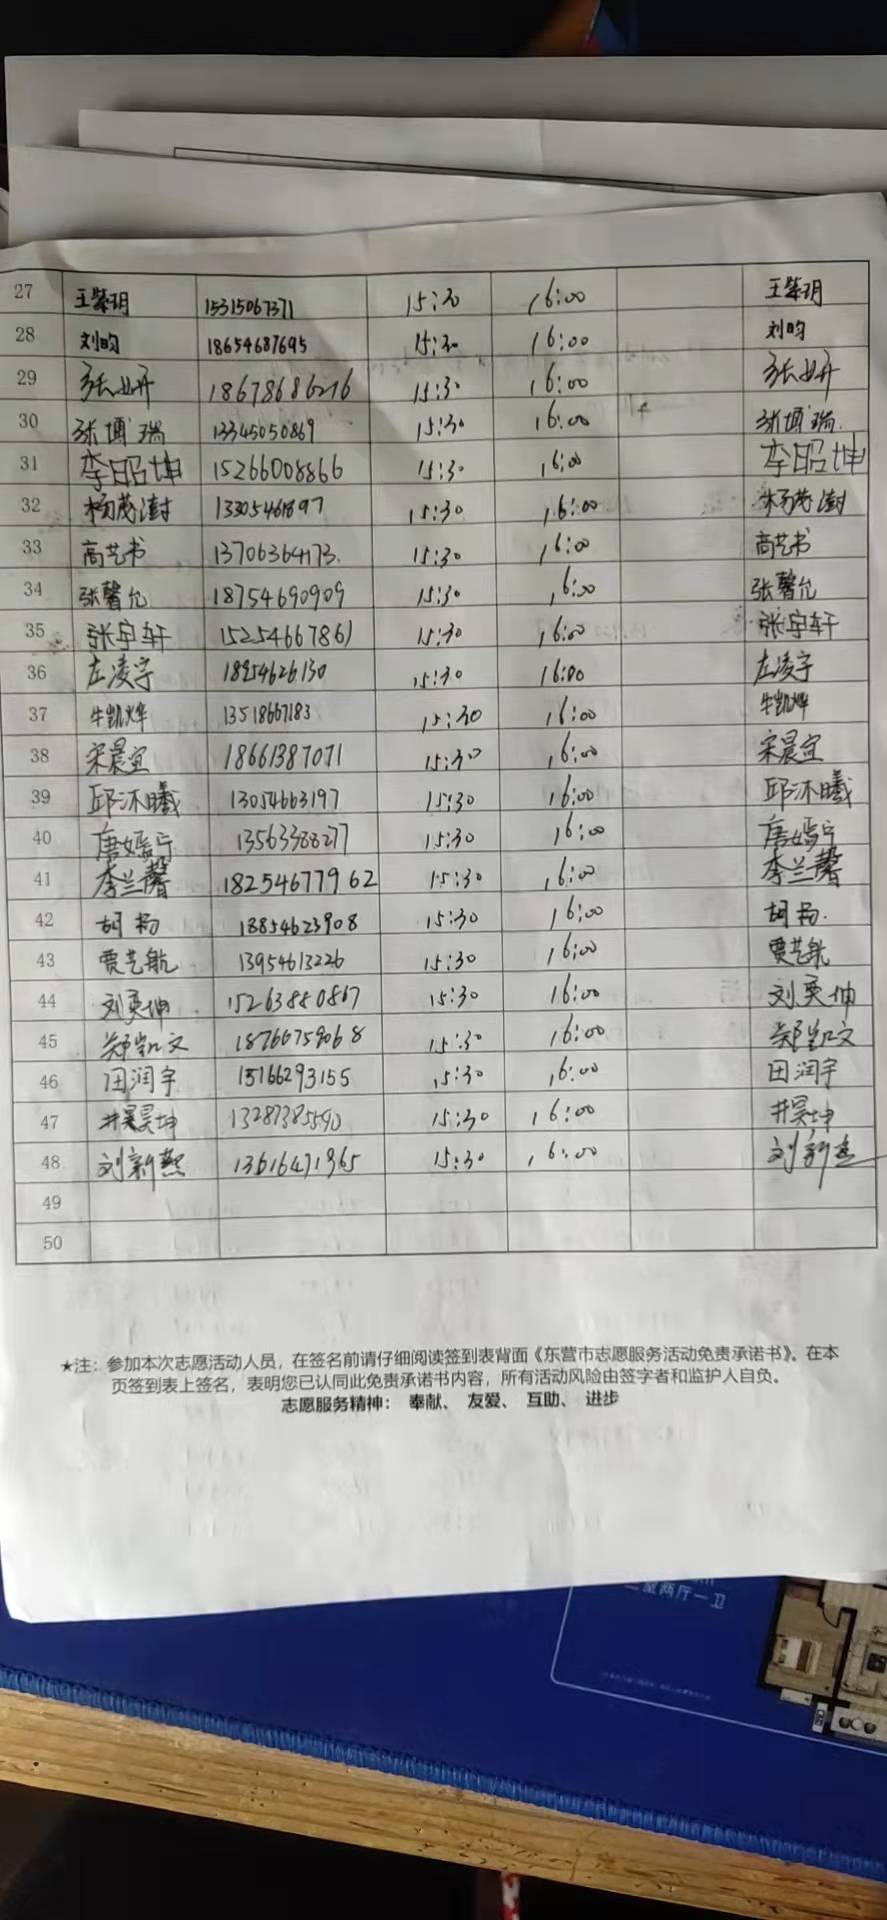 27 王紫玥 15315067371 15:30 16:00 王紫玥
28 刘昀 18654687695 15:30 16:00 刘昀
29 张妍 18678686216 15:30 16:00 张妍
30 张博瑞 13345050869 15:30 16:00 张博瑞.
31 李昭坤 15266008866 15:30 16:00 李昭坤
32 杨茂澍 13305461897 15:30 16:00 杨茂澍
33 高艺书 13706364173. 15:30 16:00 高艺书
34 张馨允 18754690909 15:30 16:00 张馨允
35 张宇轩 15254667861 15:30 16:00 张宇轩
36 左凌宇 18954626130 15:30 16:00 左凌宇
37 牛凯烨 13518667183 15:30 16:00 牛凯烨
38 宋晨宜 18661387071 15:30 16:00 宋晨宜
39 邱沐曦 13054663197 15:30 16:00 邱沐曦
40 唐嫣宁 13563388277 15:30 16:00 唐嫣宁
41 李兰馨 18254677962 15:30 16:00 李兰馨
42 胡杨 18854623908 15:30 16:00 胡杨.
43 贾艺航 13954613226 15:30 16:00 贾艺航
44 刘奕坤 15263850867 15:30 16:00 刘奕坤
45 郑凯文 18766759068 15:30 16:00 郑凯文
46 田润宇 15166293155 15:30 16:00 田润宇
47 井昊坤 13287385590 15:30 16:00 井昊坤
48 刘新熙 13616471965 15:30 16:00 刘新
49
50
★注：参加本次志愿活动人员，在签名前请仔细阅读签到表背面《东营市志愿服务活动免责承诺书》。在本
页签到表上签名，表明您已认同此免责承诺书内容，所有活动风险由签字者和监护人自负。
志愿服务精神： 奉献、 友爱、 互助、 进步
室两厅一卫